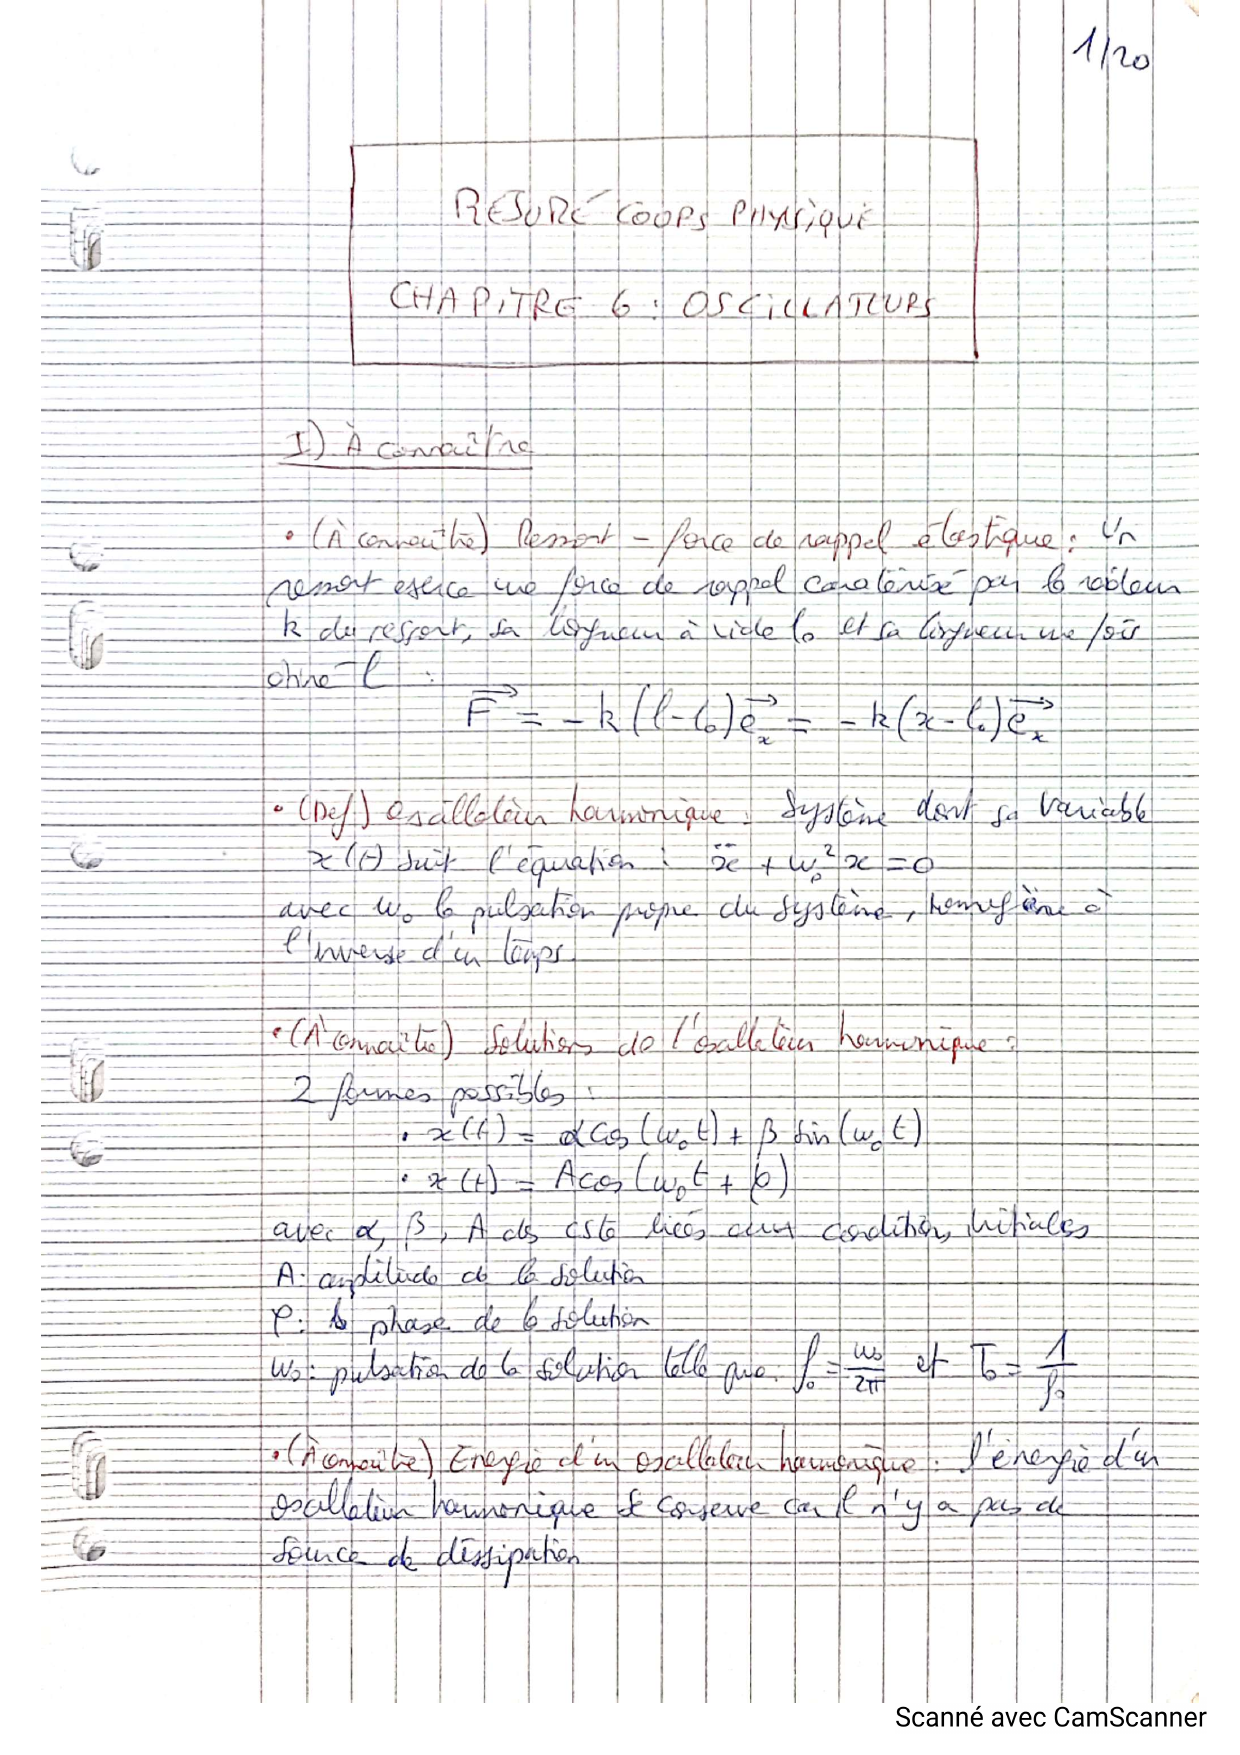 1/20
RESUMÉ COURS PHYSIQUE
CHAPITRE 6 : OSCILLATEURS
I) À connaître
• (À connaître) Ressort – force de rappel élastique : Un
ressort exerce une force de rappel caractérisé par la raideur
k du ressort, sa longueur à vide l₀ et sa longueur une fois
étiré l :
F⃗ = -k(l-l₀)e⃗ₓ = -k(x-l₀)e⃗ₓ
• (Def) Oscillateur harmonique : Système dont sa variable
x(t) suit l'équation : ẍ + ω₀²x = 0
avec ω₀ la pulsation propre du système, homogène à
l'inverse d'un temps
• (À connaître) Solutions de l'oscillateur harmonique :
2 formes possibles :
• x(t) = α cos(ω₀t) + β sin(ω₀t)
• x(t) = A cos(ω₀t + φ)
avec α, β, A des cste liées aux conditions initiales
A : amplitude de la solution
φ : la phase de la solution
ω₀ : pulsation de la solution telle que f₀ = ω₀/2π et T₀ = 1/f₀
• (À connaître) Energie d'un oscillateur harmonique : l'énergie d'un
oscillateur harmonique se conserve car il n'y a pas de
source de dissipation
Scanné avec CamScanner